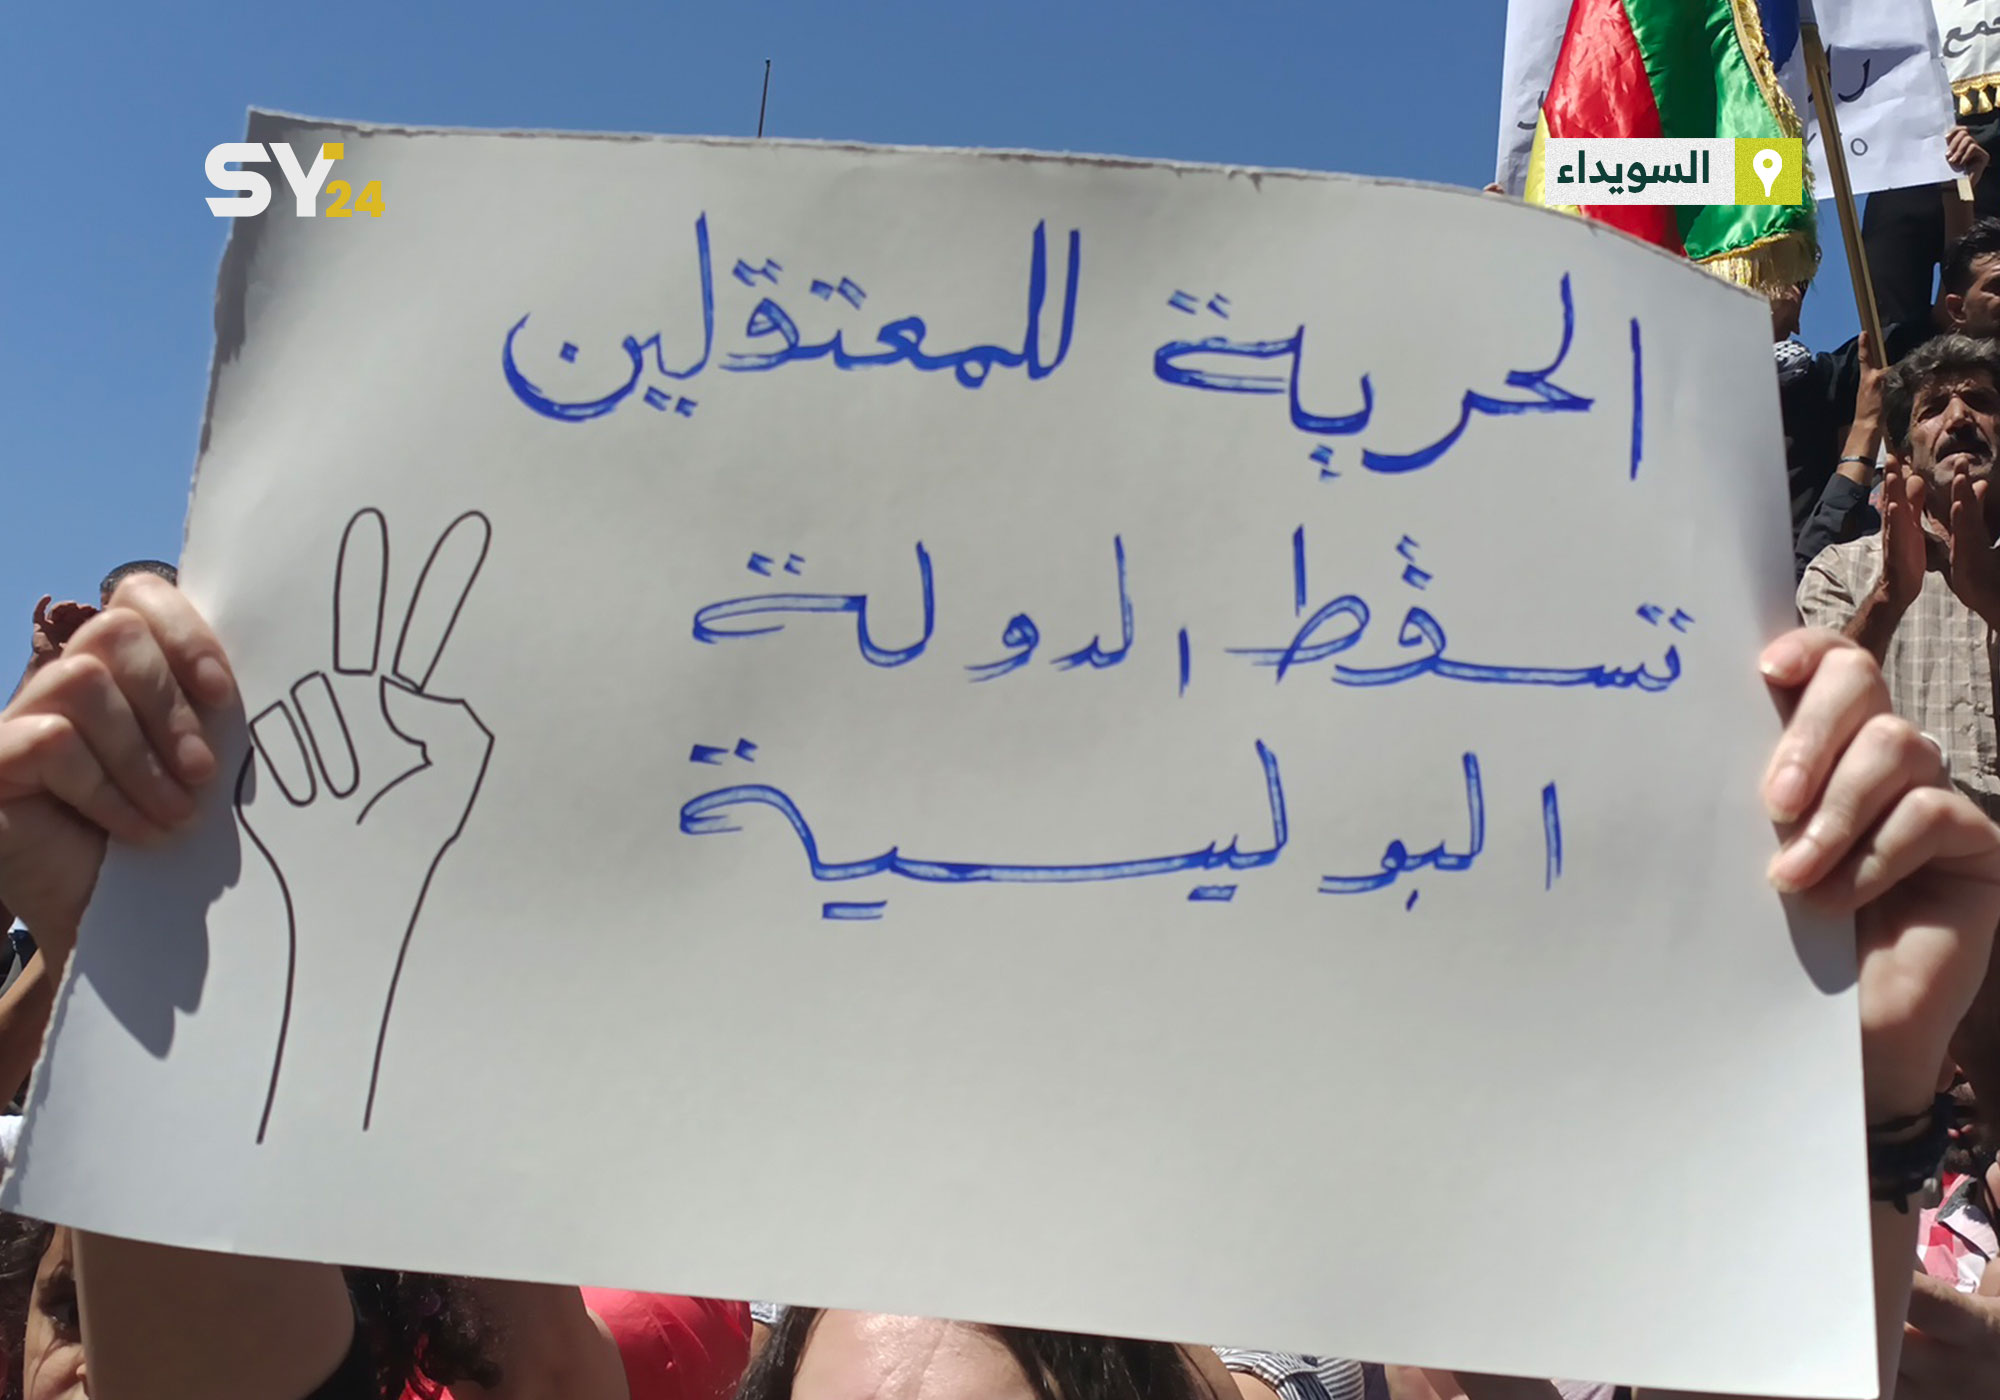 SY24
السويداء
الحرية للمعتقلين
تسقط الدولة
البوليسية